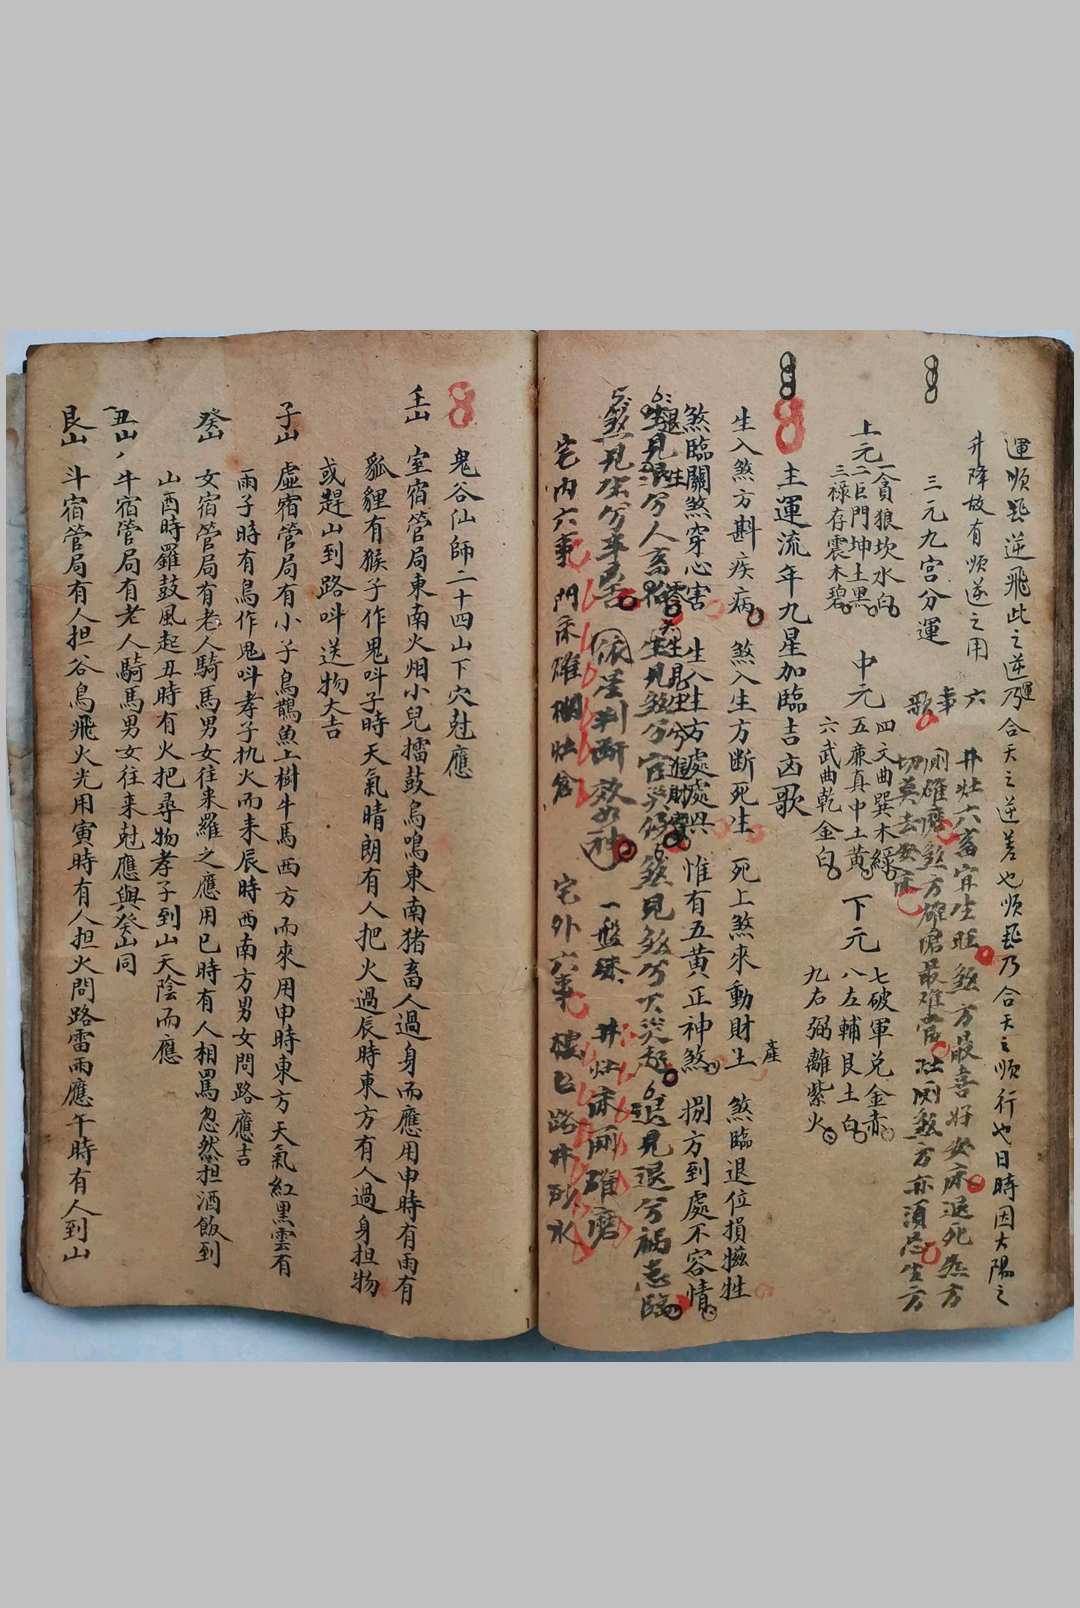 運順飛逆飛此之逆運乃合天之逆差也順飛乃合天之順行也日時因太陽之
升降故有順逆之用
六事歌
井灶六畜宜生旺煞方最喜好安床退死煞方
廁碓磨煞方碓
最難當灶廁煞方亦須忌生方
切莫去安床
三元九宮分運
上元
一貪狼坎水白
二巨門坤土黑
三祿存震木碧
中元
四文曲巽木綠
五廉貞中土黃
六武曲乾金白
下元
七破軍兑金赤
八左輔艮土白
九右弼離紫火
主運流年九星加臨吉凶歌
生入煞方斟疾病 煞入生方斷死生 死上煞來動財產 煞臨退位損犧牲
煞臨關煞穿心害 生入生方處處興 惟有五黃正神煞 捌方到處不容情
生見生兮
生見退兮人畜 生見煞兮官災 煞見煞兮大災起 退見退兮禍患臨
煞見生兮 依星判断效如神 一般 井灶床廁碓磨
宅内六事 門床碓 灶倉 宅外六事 路井 水
鬼谷仙師二十四山下穴尅應
壬山 室宿管局東南火烟小兒擂鼓烏鳴東南猪畜人過身而應用申時有雨有
狐貍有猴子作鬼呌子時天氣晴朗有人把火過辰時東方有人過身担物
或趕山到路呌送物大吉
子山 虛宿管局有小子鳥鵲魚上樹牛馬西方而來用申時東方天氣紅黑雲有
雨子時有鳥作鬼呌孝子执火而来辰時西南方男女問路應吉
癸山 女宿管局有老人騎馬男女往来羅之應用巳時有人相罵忽然担酒飯到
山酉時羅鼓風起丑時有火把尋物孝子到山天陰而應
丑山 牛宿管局有老人騎馬男女往来尅應與癸山同
艮山 斗宿管局有人担谷鳥飛火光用寅時有人担火問路雷雨應午時有人到山